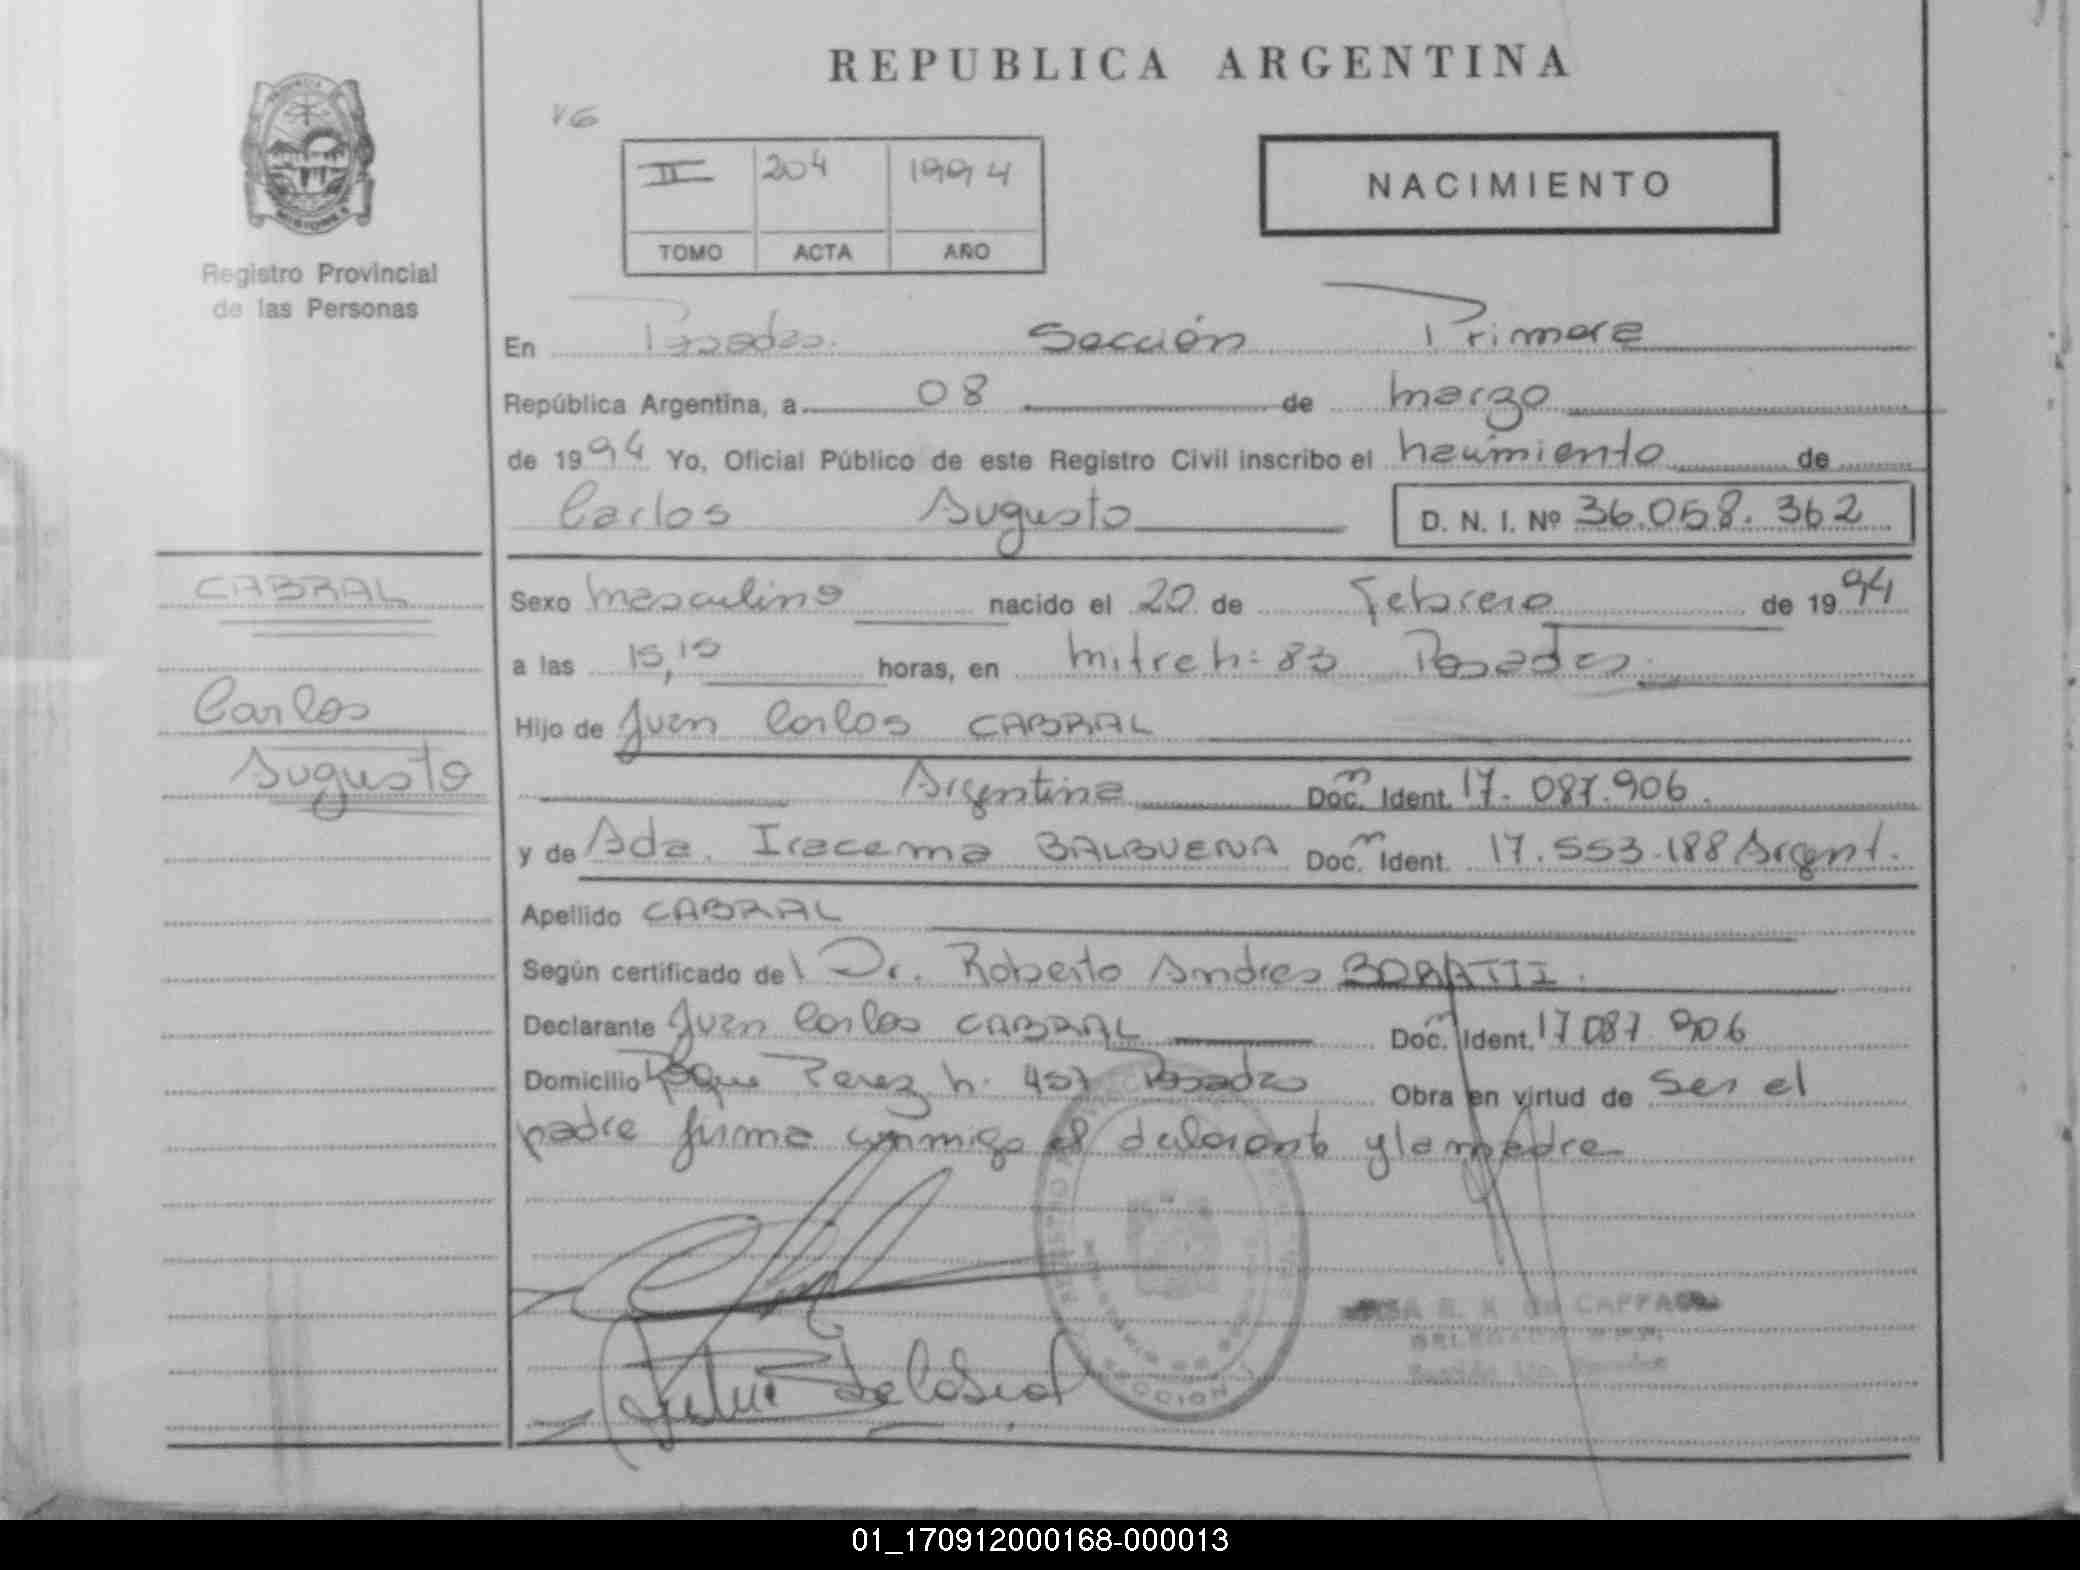 REPUBLICA ARGENTINA
Registro Provincial
de las Personas
VG
II 204 1994
TOMO ACTA AÑO
NACIMIENTO
En Posadas. Sección Primera
República Argentina, a 08 de marzo
de 1994 Yo, Oficial Público de este Registro Civil inscribo el nacimiento de
Carlos Augusto D. N. I. Nº 36.058.362
CABRAL
Carlos
Augusto
Sexo masculino nacido el 20 de Febrero de 1994
a las 15,15 horas, en mitre n: 83 Posadas.
Hijo de Juan Carlos CABRAL
Argentina Doc. Ident. 17.087.906.
y de Ada. Iracema BALBUENA Doc. Ident. 17.553.188 Argent.
Apellido CABRAL
Según certificado de l Dr. Roberto Andres BORATTI.
Declarante Juan Carlos CABRAL Doc. Ident. 17087 906
Domicilio Roque Perez n. 457 Posadas Obra en virtud de ser el
padre firma conmigo el declarante y la madre
SECCION 1
DE CAPPA
01_170912000168-000013